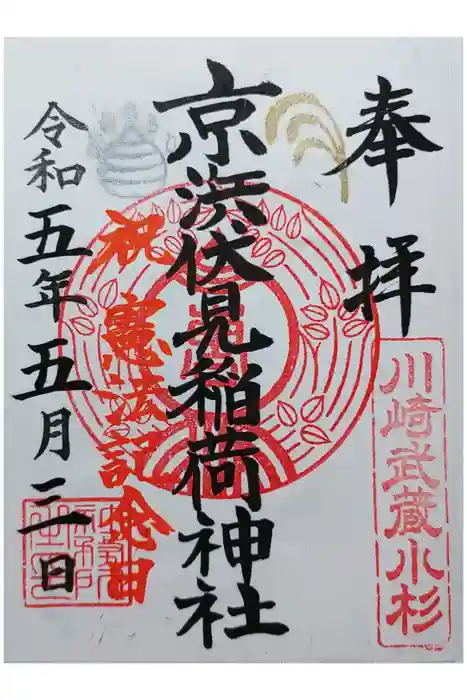 奉拝
川崎武蔵小杉
京浜伏見稲荷神社
祝 憲法記念日
令和五年五月三日